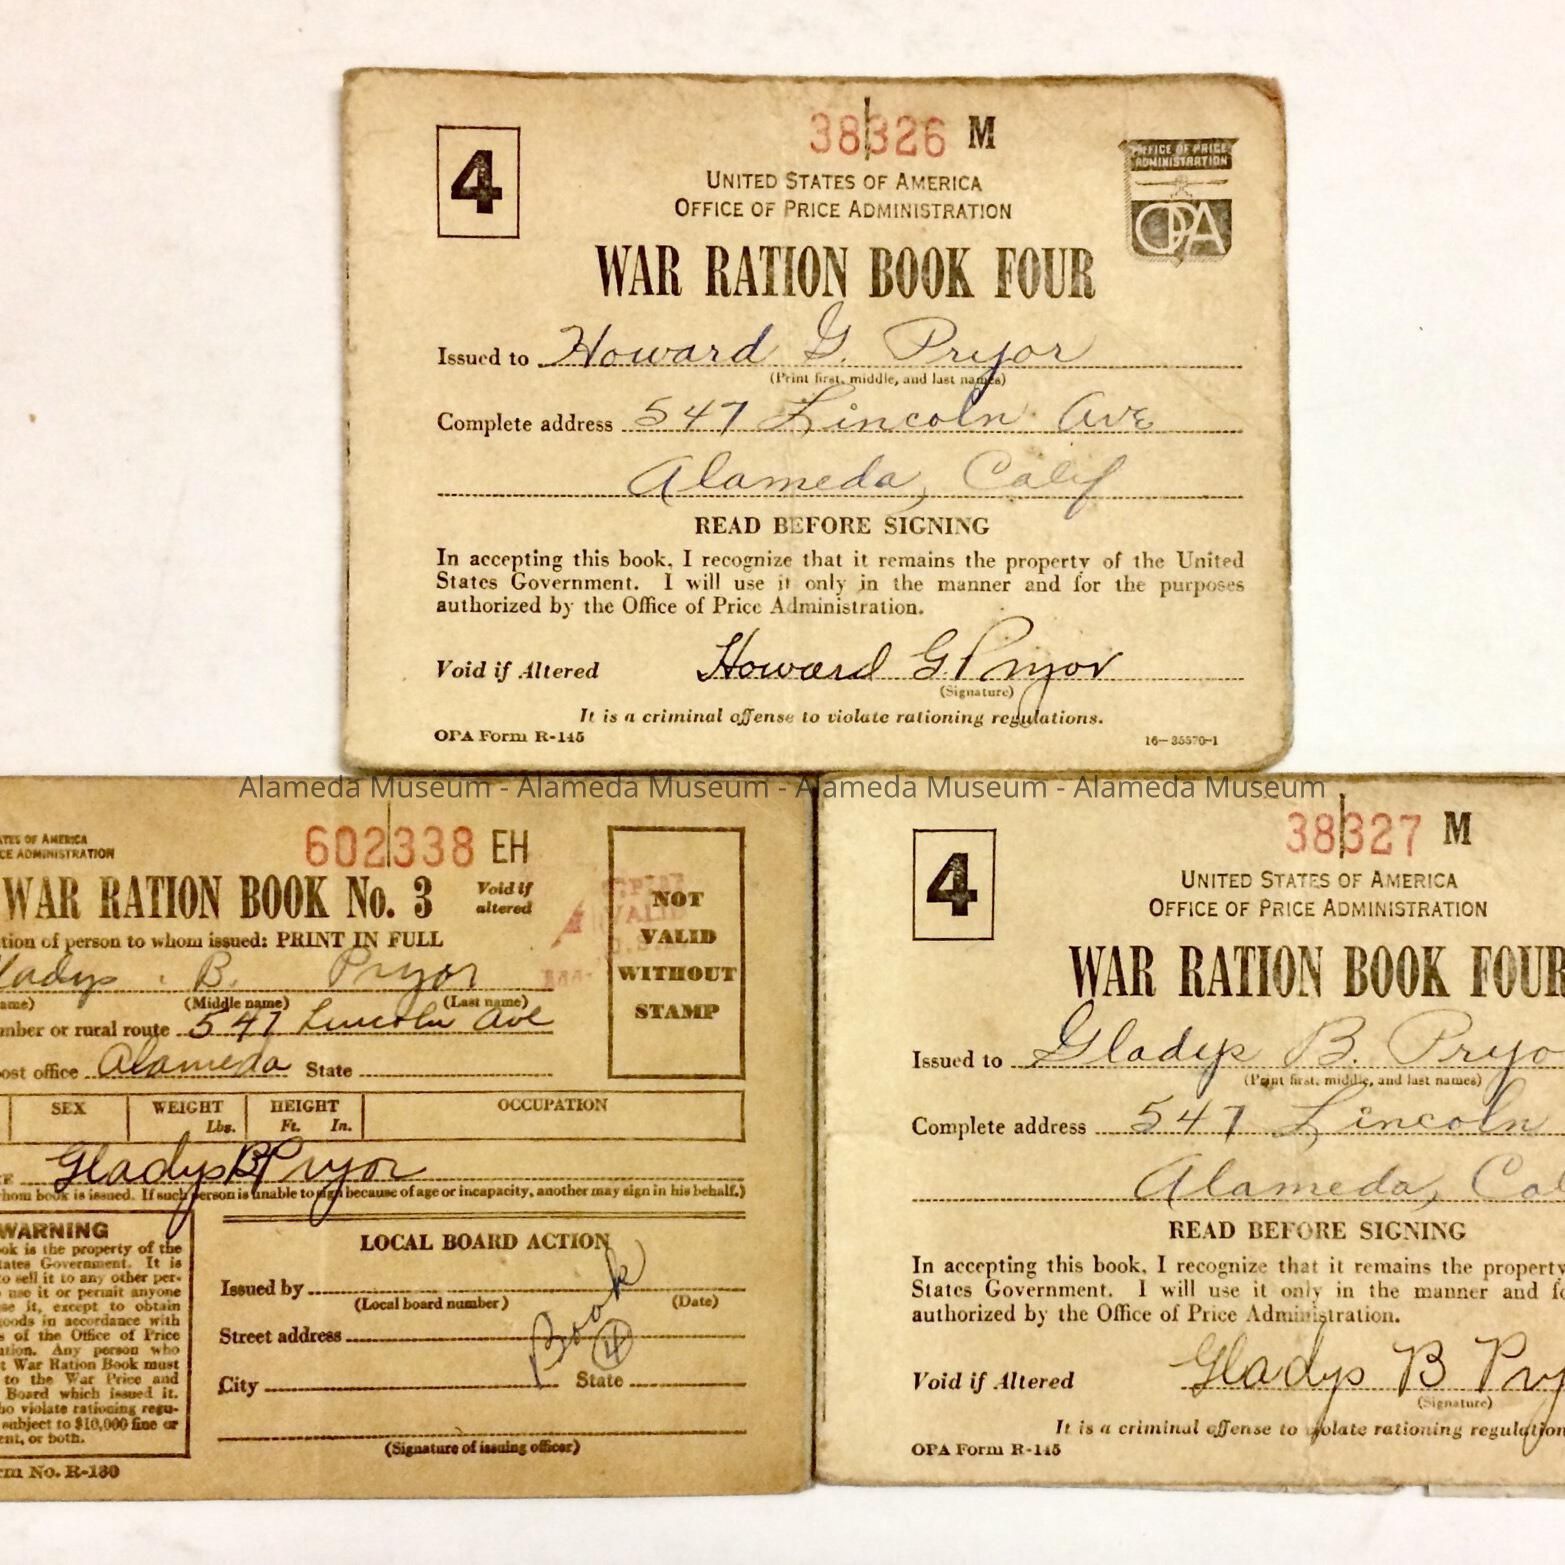 38326 M
4
OFFICE OF PRICE
ADMINISTRATION
OPA
UNITED STATES OF AMERICA
OFFICE OF PRICE ADMINISTRATION
WAR RATION BOOK FOUR
Issued to Howard G. Pryor
(Print first, middle, and last names)
Complete address 547 Lincoln Ave
Alameda, Calif
READ BEFORE SIGNING
In accepting this book, I recognize that it remains the property of the United
States Government. I will use it only in the manner and for the purposes
authorized by the Office of Price Administration.
Void if Altered Howard G. Pryor
(Signature)
It is a criminal offense to violate rationing regulations.
OPA Form R-145 16-35570-1
Alameda Museum - Alameda Museum - Alameda Museum - Alameda Museum
TES OF AMERICA
CE ADMINISTRATION
602338 EH
WAR RATION BOOK No. 3 Void if
altered
tion of person to whom issued: PRINT IN FULL
ladys B. Pryor
ame) (Middle name) (Last name)
mber or rural route 547 Lincoln Ave
ost office Alameda State
NOT
VALID
WITHOUT
STAMP
SEX WEIGHT HEIGHT OCCUPATION
Lbs. Ft. In.
Gladys B Pryor
hom book is issued. If such person is unable to sign because of age or incapacity, another may sign in his behalf.)
WARNING
ok is the property of the
tates Government. It is
o sell it to any other per-
use it or permit anyone
se it, except to obtain
goods in accordance with
s of the Office of Price
ation. Any person who
t War Ration Book must
to the War Price and
Board which issued it.
ho violate rationing regu-
subject to $10,000 fine or
ent, or both.
rm No. R-130
LOCAL BOARD ACTION
Issued by
(Local board number) (Date)
Street address
Book
4
City State
(Signature of issuing officer)
38327 M
4
UNITED STATES OF AMERICA
OFFICE OF PRICE ADMINISTRATION
WAR RATION BOOK FOUR
Issued to Gladys B. Pryo
(Print first, middle, and last names)
Complete address 547 Lincoln
Alameda, Cal
READ BEFORE SIGNING
In accepting this book, I recognize that it remains the property
States Government. I will use it only in the manner and fo
authorized by the Office of Price Administration.
Void if Altered Gladys B Pry
(Signature)
It is a criminal offense to violate rationing regulation
OPA Form R-145